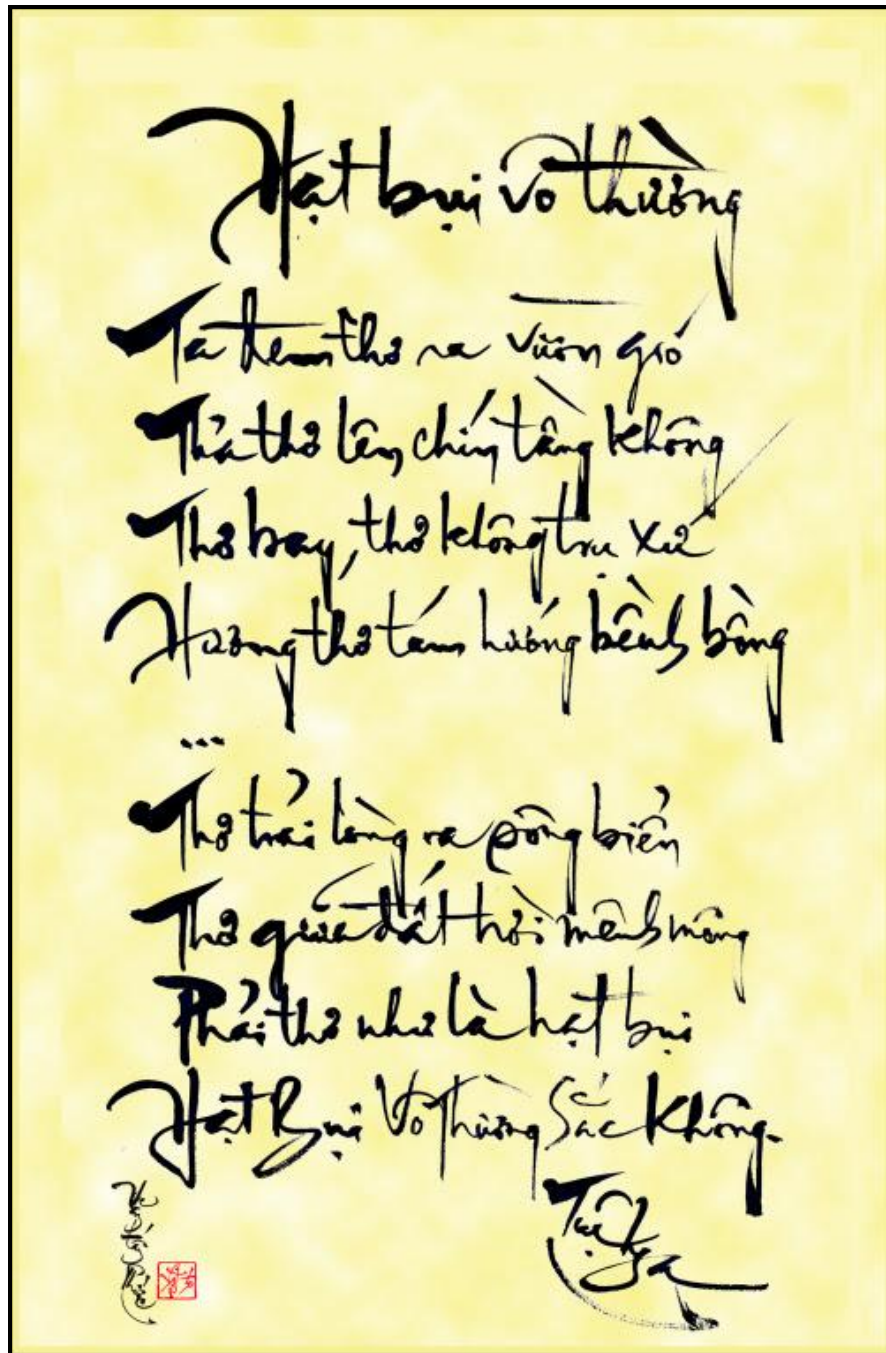 Hạt bụi vô thường
Ta đem thơ ra vườn gió
Thả thơ lên chín tầng không
Thơ bay, thơ không trụ xứ
Hương thơ tám hướng bềnh bồng
...
Thơ trải lòng ra sông biển
Thơ giữa đất trời mênh mông
Phải thơ như là hạt bụi
Hạt Bụi Vô Thường Sắc Không.
Tuệ Nga